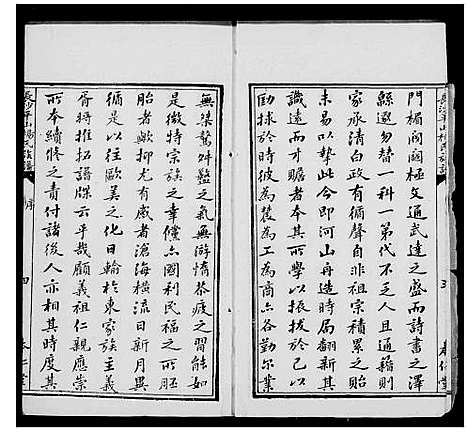 門楣閥閱極文通武達之盛而詩書之澤
緜遞勿替一科一第代不乏人且通籍則
家承清白政有循聲自非祖宗積累之
未易以摯此今即河山再造時局翻新其
識遠而才贍者本其所學以振拔於已
劬捄於時彼為農為工為商亦各勤尔業
無桀驁舛盭之氣無游惰恭疲之習能如
是徵特宗族之幸儻亦國利民福之所胚
胎者歟抑尤有感者滄海橫流日新月異
循是以往歐美之化日輸於東家族主義
胥將推拓譜牒云乎哉顧義祖仁親應崇
所本續修之責付諸後人亦相其時度其
長沙平山楊氏族譜
序
四